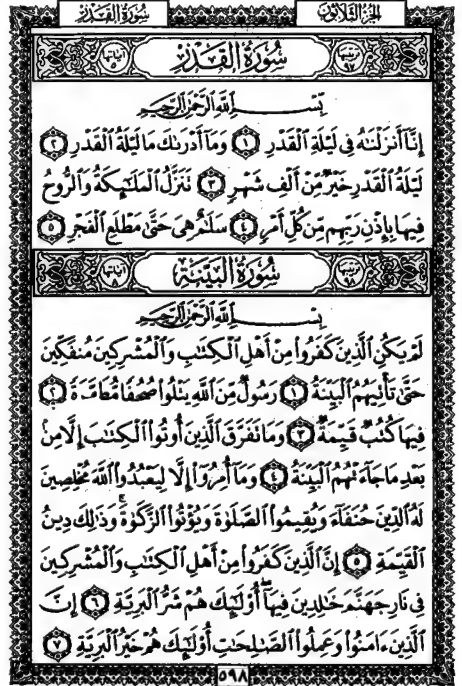 سُورَةُ القَدْرِ
الجُزءُ الثَّلَاثُونَ
ترتيبها ٩٧ سُورَةُ القَدْرِ آياتها ٥
بِسْمِ ٱللَّهِ ٱلرَّحْمَٰنِ ٱلرَّحِيمِ
إِنَّآ أَنزَلْنَٰهُ فِى لَيْلَةِ ٱلْقَدْرِ ١ وَمَآ أَدْرَىٰكَ مَا لَيْلَةُ ٱلْقَدْرِ ٢
لَيْلَةُ ٱلْقَدْرِ خَيْرٌ مِّنْ أَلْفِ شَهْرٍ ٣ تَنَزَّلُ ٱلْمَلَٰٓئِكَةُ وَٱلرُّوحُ
فِيهَا بِإِذْنِ رَبِّهِم مِّن كُلِّ أَمْرٍ ٤ سَلَٰمٌ هِىَ حَتَّىٰ مَطْلَعِ ٱلْفَجْرِ ٥
ترتيبها ٩٨ سُورَةُ البَيِّنَةِ آياتها ٨
بِسْمِ ٱللَّهِ ٱلرَّحْمَٰنِ ٱلرَّحِيمِ
لَمْ يَكُنِ ٱلَّذِينَ كَفَرُوا۟ مِنْ أَهْلِ ٱلْكِتَٰبِ وَٱلْمُشْرِكِينَ مُنفَكِّينَ
حَتَّىٰ تَأْتِيَهُمُ ٱلْبَيِّنَةُ ١ رَسُولٌ مِّنَ ٱللَّهِ يَتْلُوا۟ صُحُفًا مُّطَهَّرَةً ٢
فِيهَا كُتُبٌ قَيِّمَةٌ ٣ وَمَا تَفَرَّقَ ٱلَّذِينَ أُوتُوا۟ ٱلْكِتَٰبَ إِلَّا مِنۢ
بَعْدِ مَا جَآءَتْهُمُ ٱلْبَيِّنَةُ ٤ وَمَآ أُمِرُوٓا۟ إِلَّا لِيَعْبُدُوا۟ ٱللَّهَ مُخْلِصِينَ
لَهُ ٱلدِّينَ حُنَفَآءَ وَيُقِيمُوا۟ ٱلصَّلَوٰةَ وَيُؤْتُوا۟ ٱلزَّكَوٰةَ ۚ وَذَٰلِكَ دِينُ
ٱلْقَيِّمَةِ ٥ إِنَّ ٱلَّذِينَ كَفَرُوا۟ مِنْ أَهْلِ ٱلْكِتَٰبِ وَٱلْمُشْرِكِينَ
فِى نَارِ جَهَنَّمَ خَٰلِدِينَ فِيهَآ ۚ أُو۟لَٰٓئِكَ هُمْ شَرُّ ٱلْبَرِيَّةِ ٦ إِنَّ
ٱلَّذِينَ ءَامَنُوا۟ وَعَمِلُوا۟ ٱلصَّٰلِحَٰتِ أُو۟لَٰٓئِكَ هُمْ خَيْرُ ٱلْبَرِيَّةِ ٧
٥٩٨